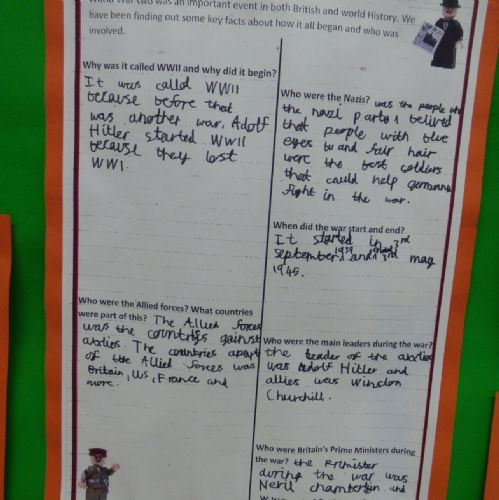 World War two was an important event in both British and world History. We
have been finding out some key facts about how it all began and who was
involved.
Why was it called WWII and why did it begin?
It was callod WWII
because before that
was another war. Adolf
Hitler started WWII
because they lost
WWI.
Who were the Allied forces? What countries
were part of this? The Allied forces
was the countries gainust
abolies. The countries apart
of the Allied forces was
Britain, US, France and
more.
Who were the Nazis? was the people who
the nazi party belived
that people with blue
eyes and fair hair
were the best soldiers
that could help germany
fight in the war.
When did the war start and end?
It started in 3rd
september 1939 and ended 3rd may
1945.
Who were the main leaders during the war?
the leader of the abolies
was Adolf Hitler and
allies was Winston
Churchill.
Who were Britain's Prime Ministers during
the war? the Primister
during the war was
Neril chamberlin and